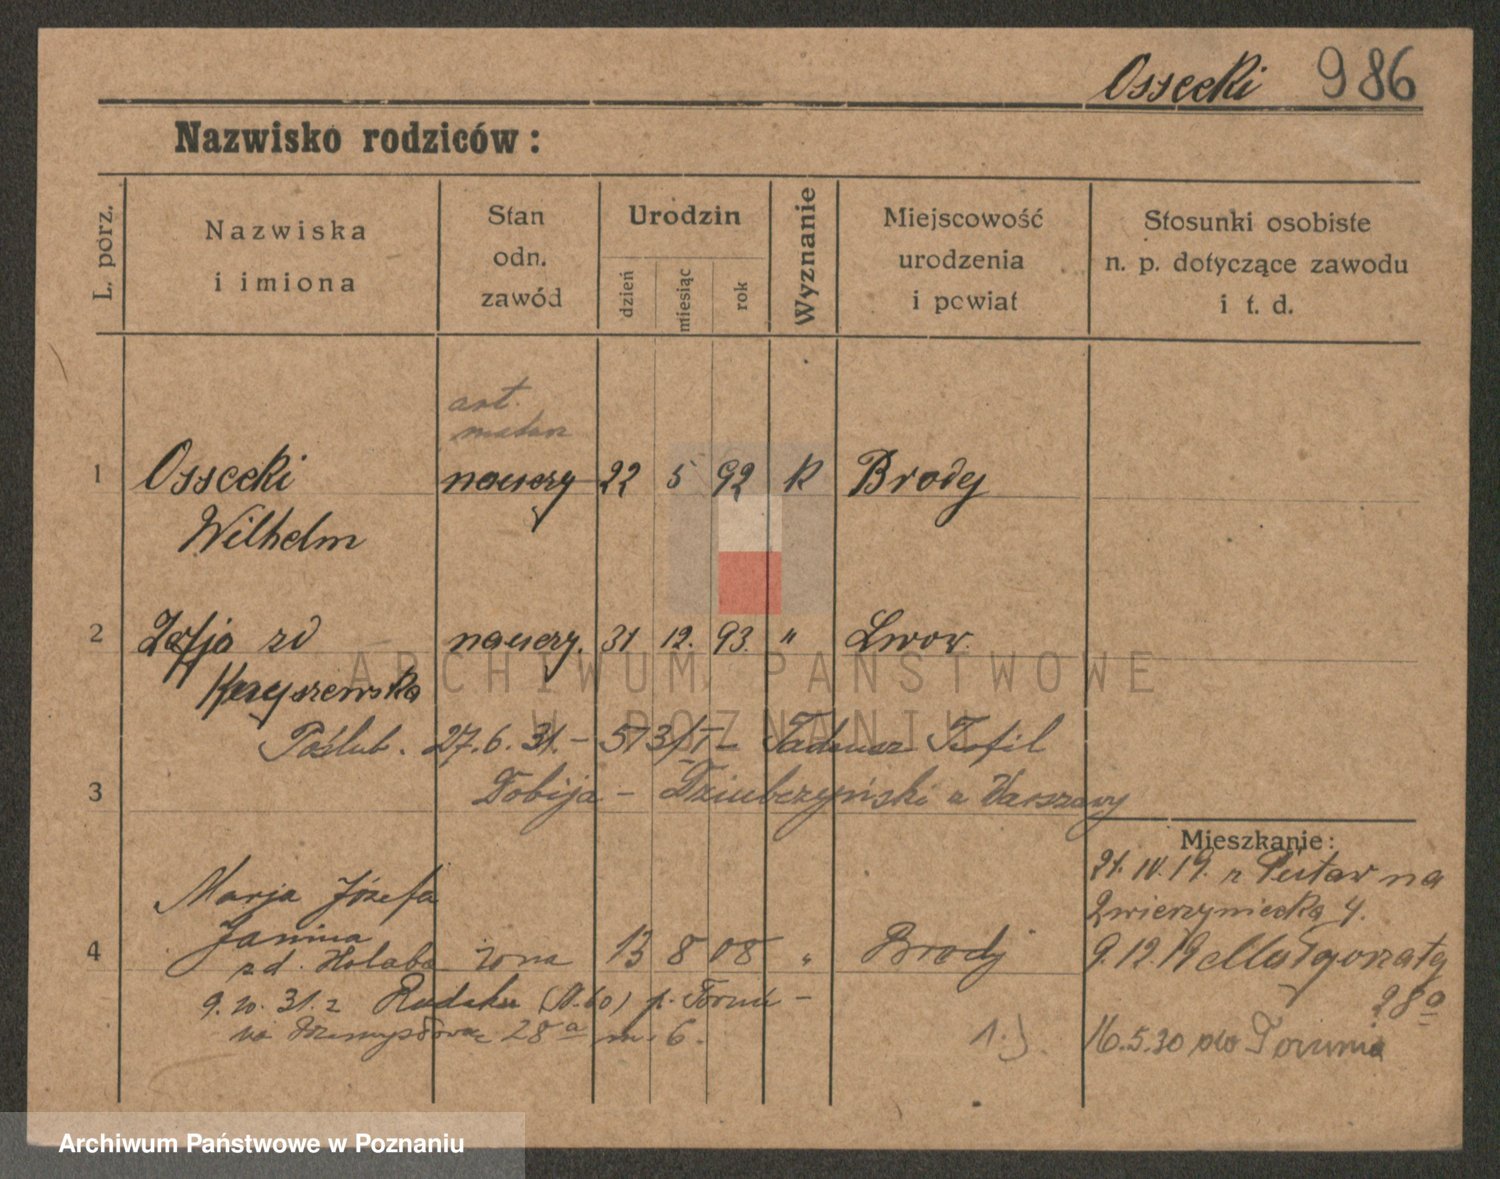 Ossecki 986
Nazwisko rodziców:
L. porz.
Nazwiska
i imiona
Stan
odn.
zawód
Urodzin
dzień
miesiąc
rok
Wyznanie
Miejscowość
urodzenia
i powiat
Stosunki osobiste
n. p. dotyczące zawodu
i t. d.
art.
1 Ossecki 22 5 92 R Brody
Wilhelm
2 Zofja zd nauczy. 31 12. 93. " Lwow.
ARCHIWUM PAŃSTWOWE
W POZNANIU
Poślub. 27.6.31. – Tadeusz Teofil
3 Tobija – Dziubczyński z Warszawy
Mieszkanie:
21. IV. 19. na
Zwierzyniecka 4.
Marja Józefa
Janina
4 zd. Holaba żona 13 8 08 " Brody
9.12.19 Małgorzaty
28a
9. 10. 31. z Rudaku p. Toruń –
na Przemysłowa 28a m. 6.
1.J.
16.5.30 do Torunia
Archiwum Państwowe w Poznaniu